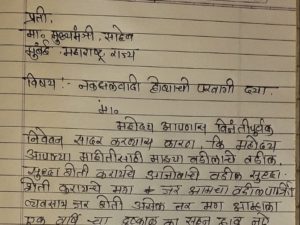 प्रती,
मा. मुख्यमंत्री, साहेब
मुंबई महाराष्ट्र राज्य
विषय :- नक्षलवादी होण्याची परवानगी द्या.
मा.
महोदय आपणास विनंतीपुर्वक
निवेदन सादर करण्यास कारण की महोदय
आपल्या माहीतीसाठी माझ्या वडीलाचे वडील
सुध्दा शेती करायचे वडील सुध्दा
शेती करायचे मग जर आमचा
व्यवसाय जर शेती असेल तर मग आम्हाला
एक वर्षा च्या दुष्काळ का सहन होत नाही